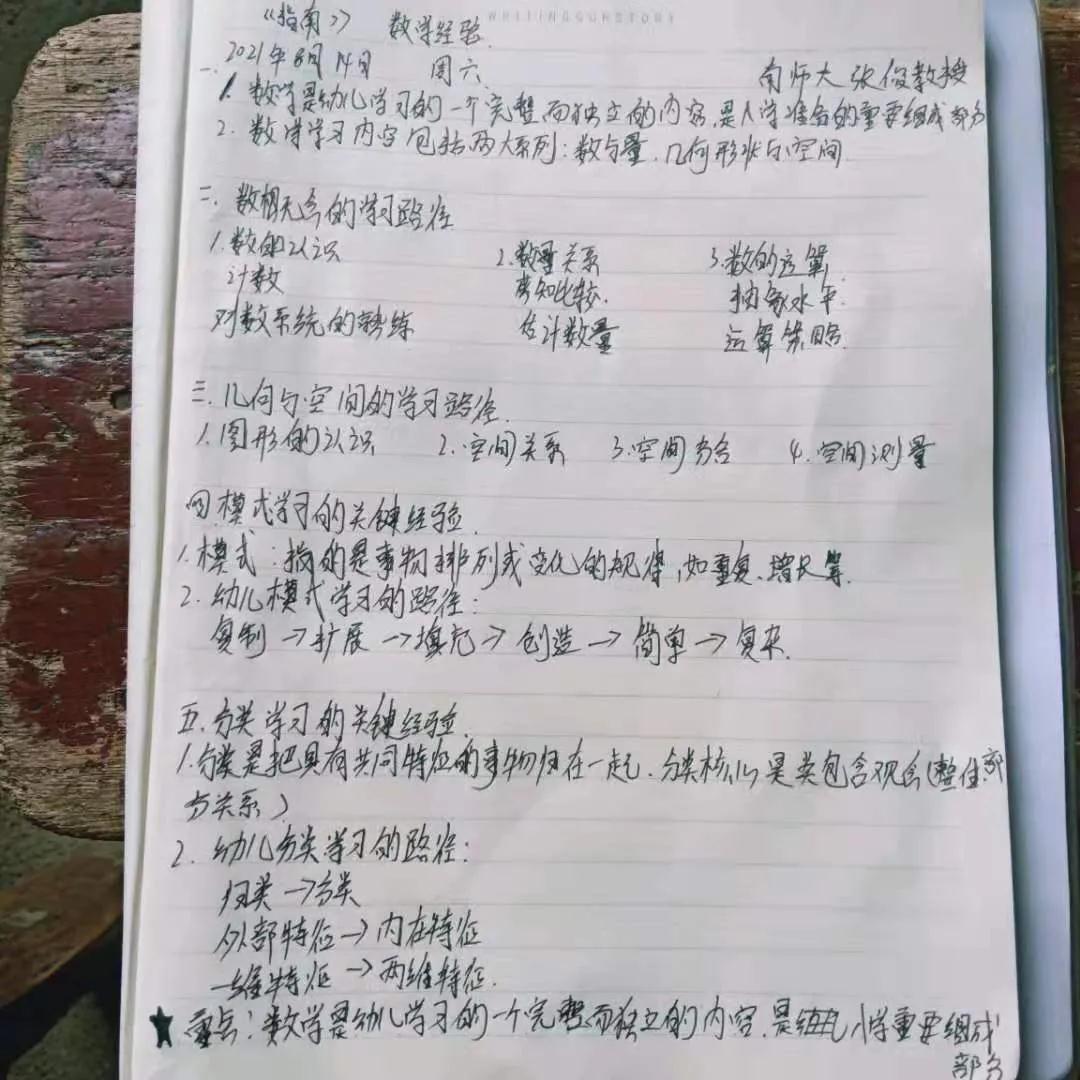 《指南》 数学经验
WRITING OUR STORY
2021年8月14日 周六 南师大 张俊教授
一、
1. 数学是幼儿学习的一个完整而独立的内容,是入学准备的重要组成部分
2. 数学学习内容包括两大系列:数与量、几何形状与空间
二、数概念的学习路径
1. 数的认识 2. 数量关系 3. 数的运算
计数 感知比较 抽象水平
对数系统的熟练 估计数量 运算策略
三、几何与空间的学习路径
1. 图形的认识 2. 空间关系 3. 空间 4. 空间测量
四 模式学习的关键经验
1. 模式:指的是事物排列或变化的规律,如重复、增长等
2. 幼儿模式学习的路径:
复制→扩展→填充→创造→简单→复杂
五、分类学习的关键经验
1. 分类是把具有共同特征的事物归在一起、分类核心是类包含观念(整体部
分关系)
2. 幼儿分类学习的路径:
归类→分类
外部特征→内在特征
一维特征→两维特征
★重点:数学是幼儿学习的一个完整而独立的内容,是 小学重要组成
部分